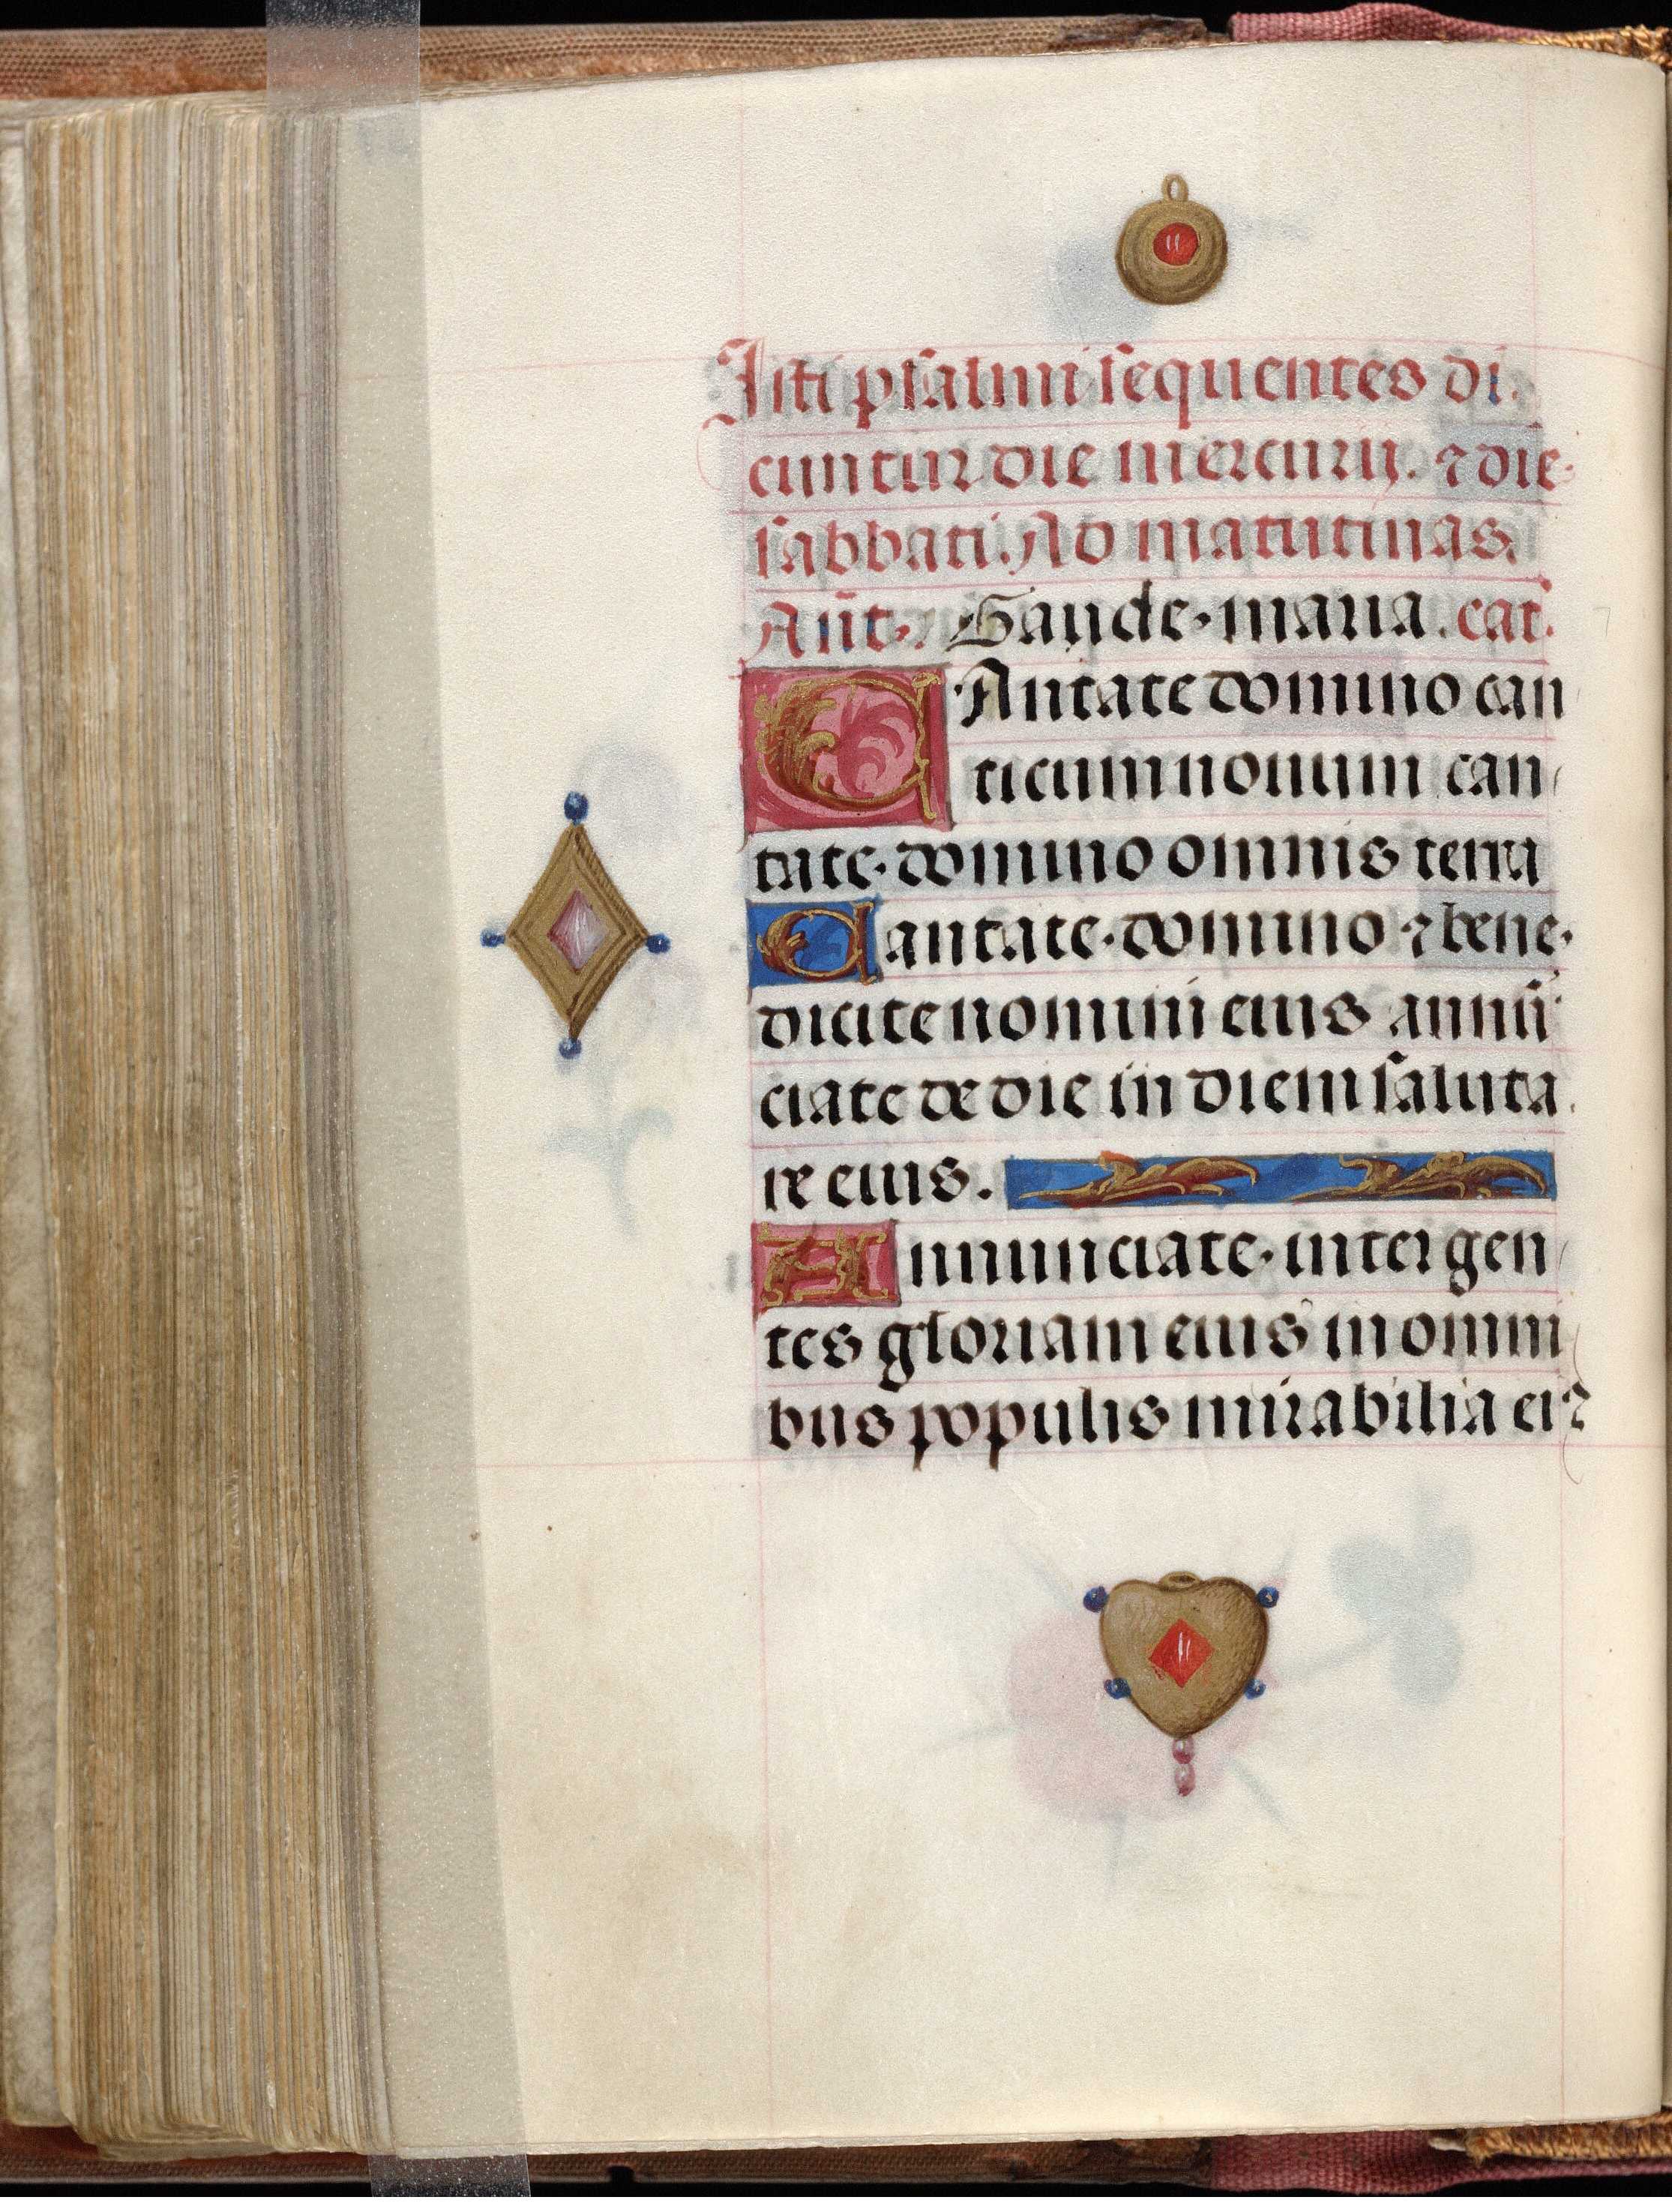 Isti psalmi sequentes di
cuntur die mercurij. ⁊ die
sabbati. Ad matutinas.
Añt. Gaude maria. cat.
CAntate domino can
ticum nouum can
tate domino omnis terra
Cantate domino ⁊ bene
dicite nomini eius annũ
ciate de die in diem saluta
re eius.
Annunciate inter gen
tes gloriam eius in omni
bus populis mirabilia eiꝰ